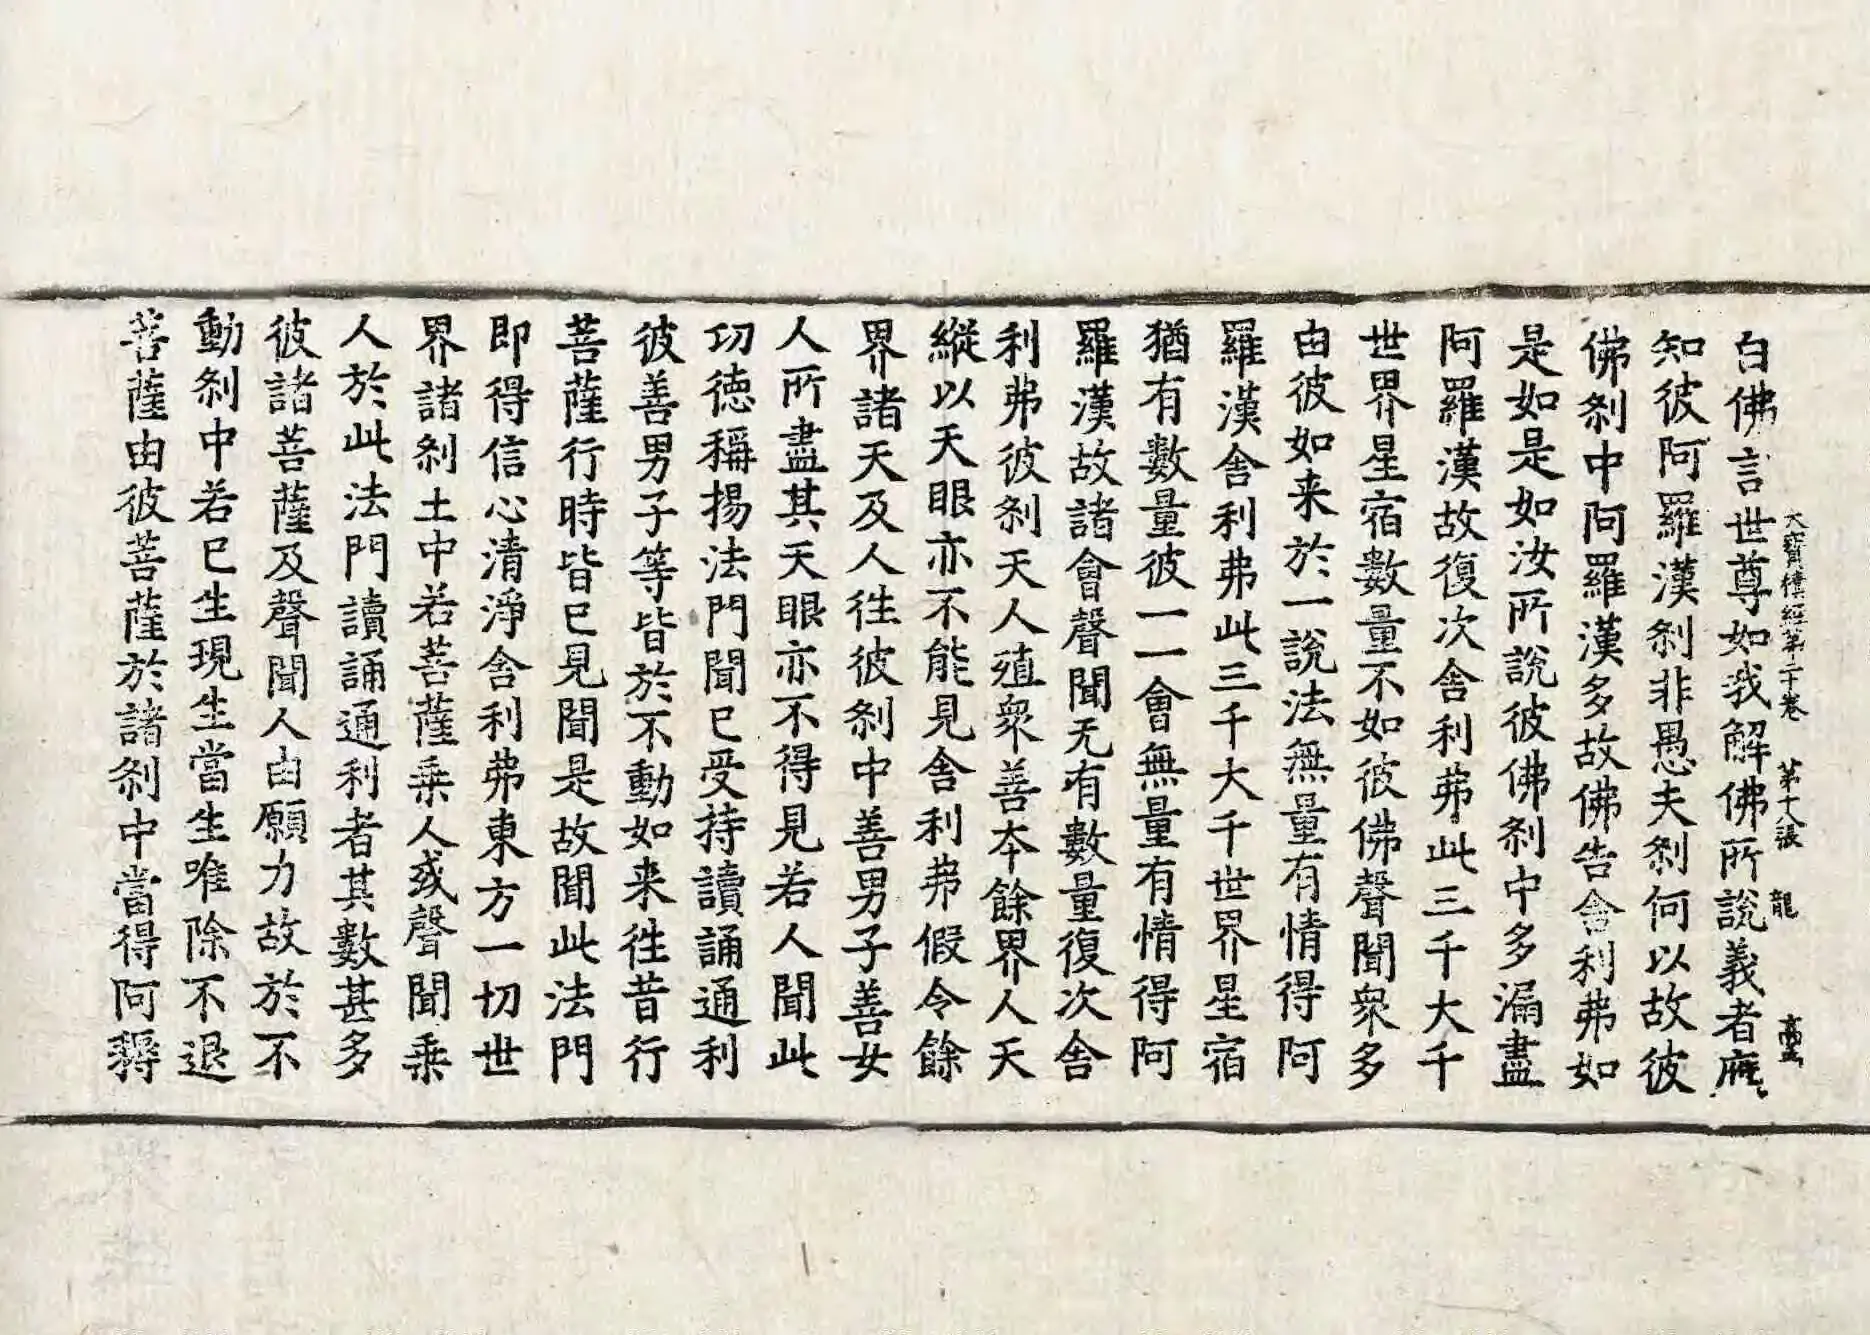 大寶積經第二十卷 第十八張 龍
白佛言世尊如我解佛所說義者應
知彼阿羅漢刹非愚夫刹何以故彼
佛刹中阿羅漢多故佛告舍利弗如
是如是如汝所說彼佛刹中多漏盡
阿羅漢故復次舍利弗此三千大千
世界星宿數量不如彼佛聲聞衆多
由彼如来於一說法無量有情得阿
羅漢舍利弗此三千大千世界星宿
猶有數量彼一一會無量有情得阿
羅漢故諸會聲聞无有數量復次舍
利弗彼刹天人殖衆善夲餘界人天
縱以天眼亦不能見舍利弗假令餘
界諸天及人徃彼刹中善男子善女
人所盡其天眼亦不得見若人聞此
切德稱揚法門聞已受持讀誦通利
彼善男子等皆於不動如来徃昔行
菩薩行時皆已見聞是故聞此法門
即得信心清淨舍利弗東方一切世
界諸刹土中若菩薩乘人或聲聞乘
人於此法門讀誦通利者其數甚多
彼諸菩薩及聲聞人由願力故於不
動刹中若已生現生當生唯除不退
菩薩由彼菩薩於諸刹中當得阿耨